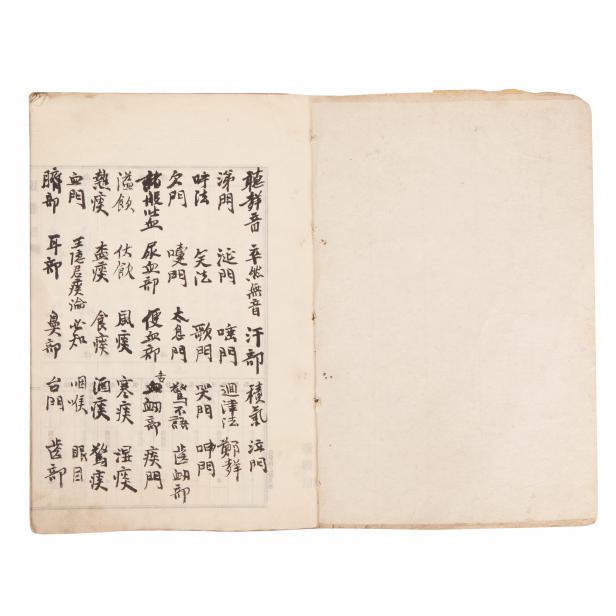 聽聲音 卒然無音 汗部 積氣
涕門 涎門 唾門 廻津法 鄭聲
呼法 笑法 歌門 哭門 呻門
欠門 嚔門 太息門 驚不語 齒衄部
尿血部 便血部 舌血衄部 痰門
溢飮 伏飮 風痰 寒痰 湿痰
熱痰 食痰 酒痰 驚痰
血門 王隱君痰論 必知 咽喉 眼目
臍部 耳部 鼻部 舌門 齒部